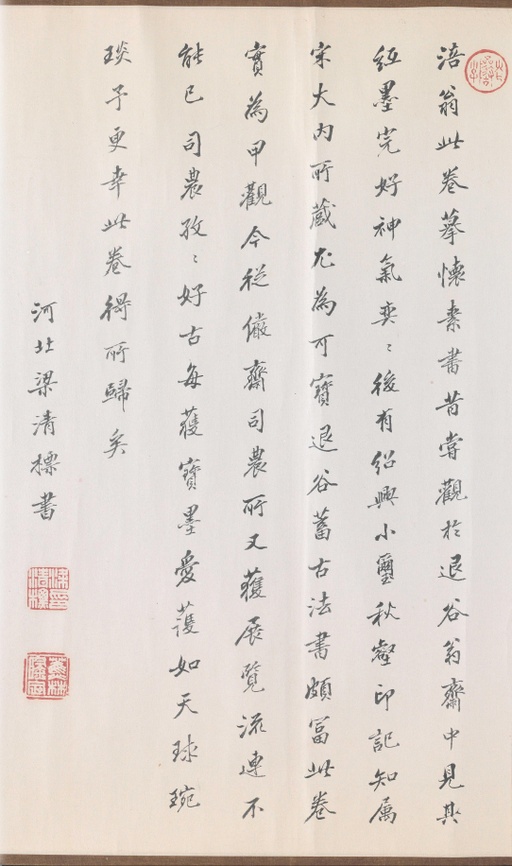 涪翁此卷摹懷素書昔嘗觀於退谷翁齋中見其
紙墨完好神氣奕〻後有紹興小璽秋壑印記知属
宋大內所藏尤為可寶退谷蓄古法書頗富此卷
實為甲觀今從儼齋司農所又獲展覽流連不
能已司農孜〻好古每獲寶墨愛護如天球琬
琰予更幸此卷得所歸矣
河北梁清標書